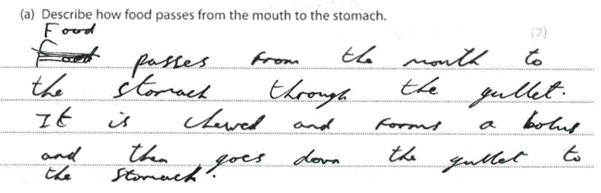 (a) Describe how food passes from the mouth to the stomach.
Food
(2)
passes from the mouth to
the stomach through the gullet.
It is chewed and forms a bolus
and then goes down the gullet to
the stomach.